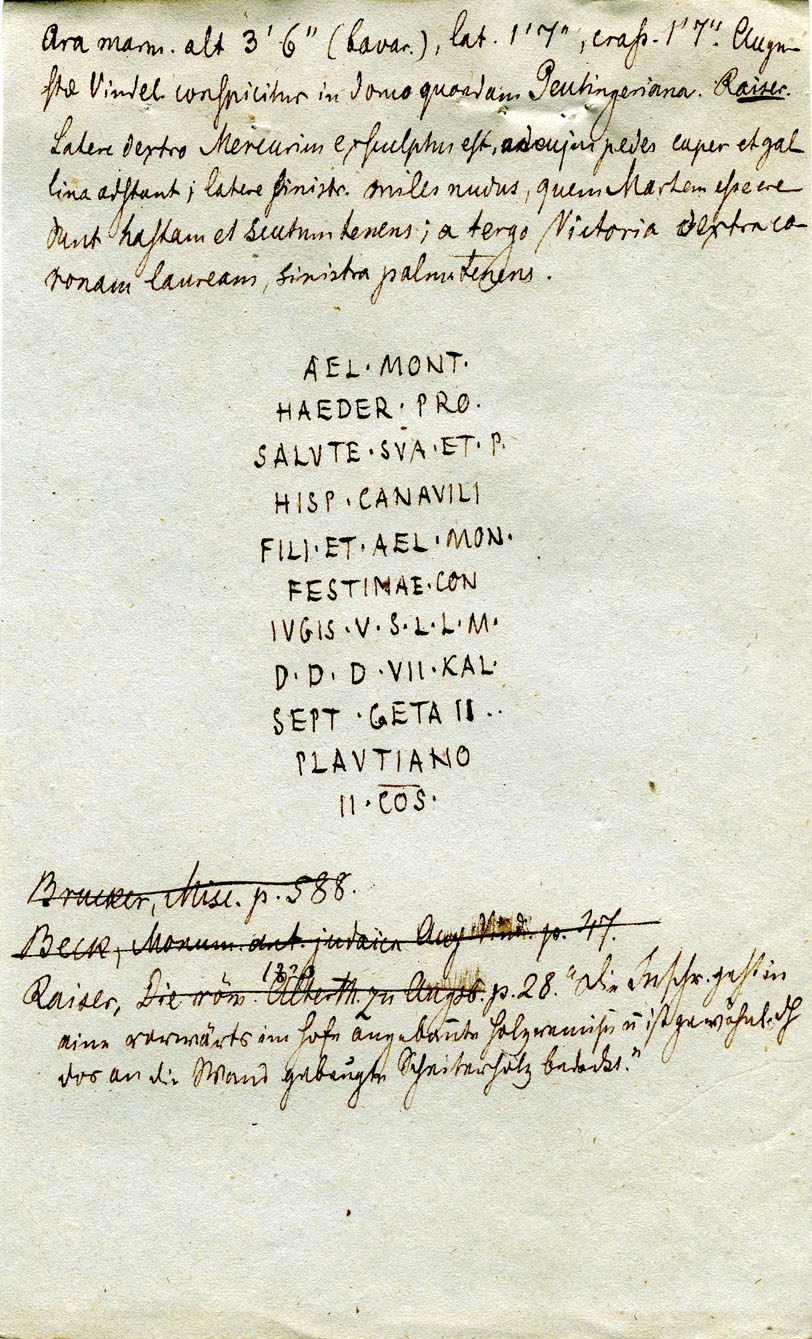 Ara marm. alt 3' 6" (bavar.), lat. 1' 7", craſs. 1' 7". Augu-
ſtæ Vindel. conſpicitur in domo quondam Peutingeriana. Raiser.
Latere dextro Mercurius exſculptus eſt, ad cujus pedes caper et gal
lina adſtant; latere ſiniſtr. miles nudus, quem Martem eſse cre
dunt haſtam et scutum tenens; a tergo Victoria dextra co-
ronam lauream, sinistra palm. tenens.
AEL · MONT.
HAEDER · PRO.
SALVTE · SVA · ET · P.
HISP · CANAVILI
FILI · ET · AEL · MON.
FESTINAE · CON
IVGIS · V · S · L · L · M.
D · D · D · VII · KAL.
SEPT · GETA II ..
PLAVTIANO
II · COS.
Brucker, Misc. p. 588.
Beck, Monum. ant. judaica Aug. Vind. p. 47.
Raiser, Die röm. Alterth. zu Augsb. p. 28. "Die Inschr. geht in
eine vorwärts im Hofe angebaute Holzremise u iſt gewöhnlich
das an die Wand gebeugte Scheiterholz bedeckt."